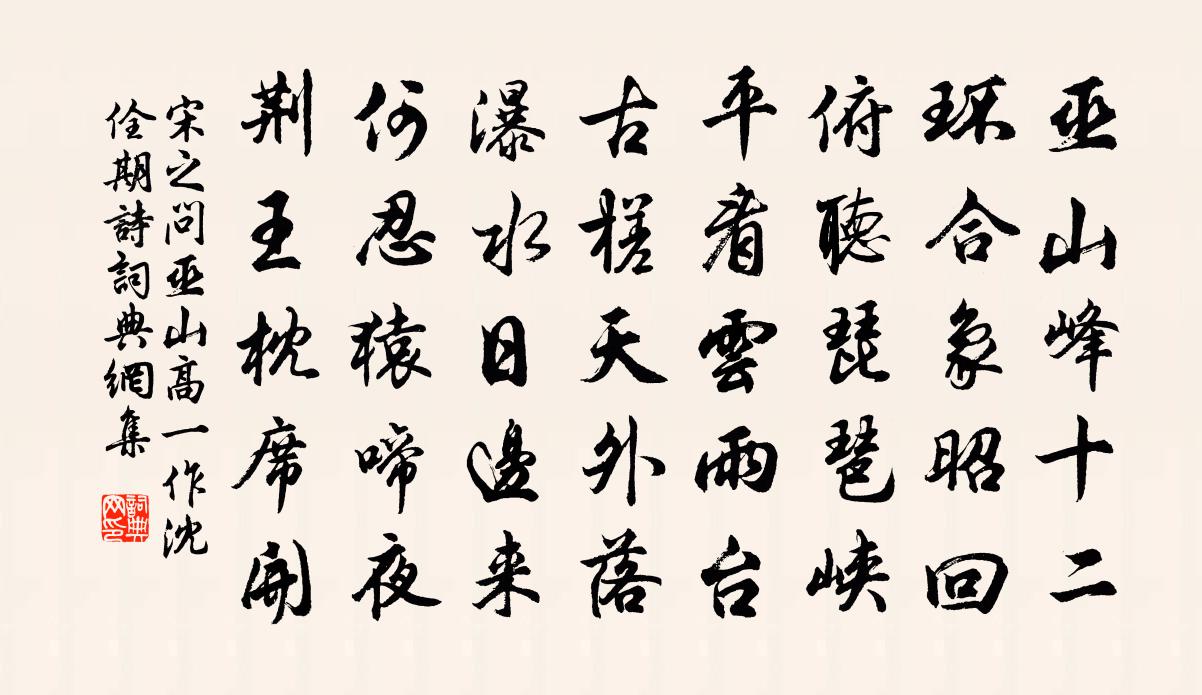 巫山峰十二
环合象昭回
俯聴琵琶峡
平看雲雨台
古槎天外落
瀑水日邊来
何忍猿啼夜
荆王枕席開
宋之問巫山高一作沈
佺期詩詞典網集
詞典網印